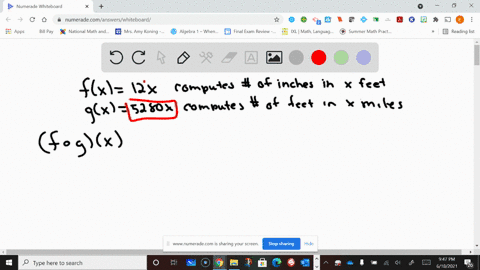 Numerade Whiteboard
numerade.com/answers/whiteboard/
Apps
Bill Pay
National Math and...
Mrs. Amy Koning -...
Final Exam Review -...
IXL | Math, Language...
Summer Math Pract...
Reading list
f(x) = 12x computes # of inches in x feet
g(x) = 5280x computes # of feet in x miles
(f∘g)(x)
www.numerade.com is sharing your screen.
Stop sharing
Hide
Type here to search
9:47 PM
5/18/2021